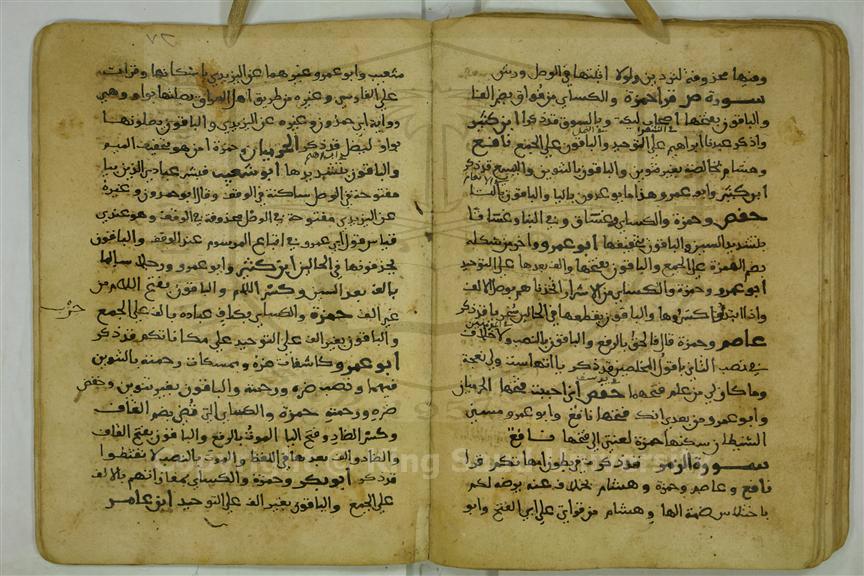 ومنها محذوفة لتردين ولولا اثبتها في الوصل ورش
سورة ص قرا حمزة والكسائي من فواق بضم الفا
والباقون بفتحها اصحاب ليكة وبالسوق قد ذكرا ابن كثير
في الشعرا في النمل
واذكر عبدنا ابراهيم على التوحيد والباقون على الجمع نافع
وهشام بخالصة بغير تنوين والباقون بالتنوين واليسع قد ذكر
في الانعام
ابن كثير وابو عمرو هذا ما يوعدون باليا والباقون بالتا
حفص وحمزة والكسائي وغساق وفي النبا وغساقا
بتشديد السين والباقون بتخفيفها ابو عمرو واخر من شكله
بضم الهمزة على الجمع والباقون بفتحها والف بعدها على التوحيد
ابو عمرو وحمزة والكسائي من الاشرار اتخذناهم بوصل الالف
واذا ابتدوا كسروها والباقون بقطعها في الحالين سخريا قد ذكر
عاصم وحمزة قال فالحق بالرفع والباقون بالنصب ولا خلاف
في نصب الثاني ياقول المخلصين قد ذكر ياآتها ست ولي نعجة
وما كان لي من علم فتحهما حفص اني احببت فتحها الحرميان
وابو عمرو من بعدي انك فتحها نافع وابو عمرو مسني
الشيطان سكنها حمزة لعنتي الى فتحها نافع
سورة الزمر قد ذكر في بطون امهاتكم قرا
نافع وعاصم وحمزة وهشام بخلاف عنه يرضه لكم
باختلاس ضمة الها وهشام من قراتي على ابي الفتح وابو
شعيب وابو عمرو وغيرهما عن اليزيدي باسكانها وقرات
على الفارسي وغيره من طريق اهل العراق بصلتها بواو وهي
رواية ابي حمدون وغيره عن اليزيدي والباقون يصلونها
بواو ليضل قد ذكر الحرميان وحمزة امن هو بتخفيف الميم
في ابراهيم
والباقون بتشديدها ابو شعيب فبشر عبادي الذين بيا
مفتوحة في الوصل ساكنة في الوقف وقال ابو حمدون وغيره
عن اليزيدي مفتوحة في الوصل محذوفة في الوقف وهو عندي
قياس قول ابي عمرو في اتباع المرسوم عند الوقف والباقون
يحذفونها في الحالين ابن كثير وابو عمرو ورجلا سالما
بالف بعد السين وكسر اللام والباقون بفتح اللام من
غير الف حمزة والكسائي بكاف عباده بالف على الجمع
والباقون بغير الف على التوحيد على مكاناتكم قد ذكر
ابو عمرو كاشفات ضره وممسكات رحمته بالتنوين
فيهما ونصب ضره ورحمته والباقون بغير تنوين وخفض
ضره ورحمته حمزة والكسائي التي قضي بضم القاف
وكسر الضاد وفتح اليا الموت بالرفع والباقون بفتح القاف
والضاد والف بعدها في اللفظ والموت بالنصب لا تقنطوا
قد ذكر ابو بكر وحمزة والكسائي بمفازاتهم بالالف
على الجمع والباقون بغير الف على التوحيد ابن عامر